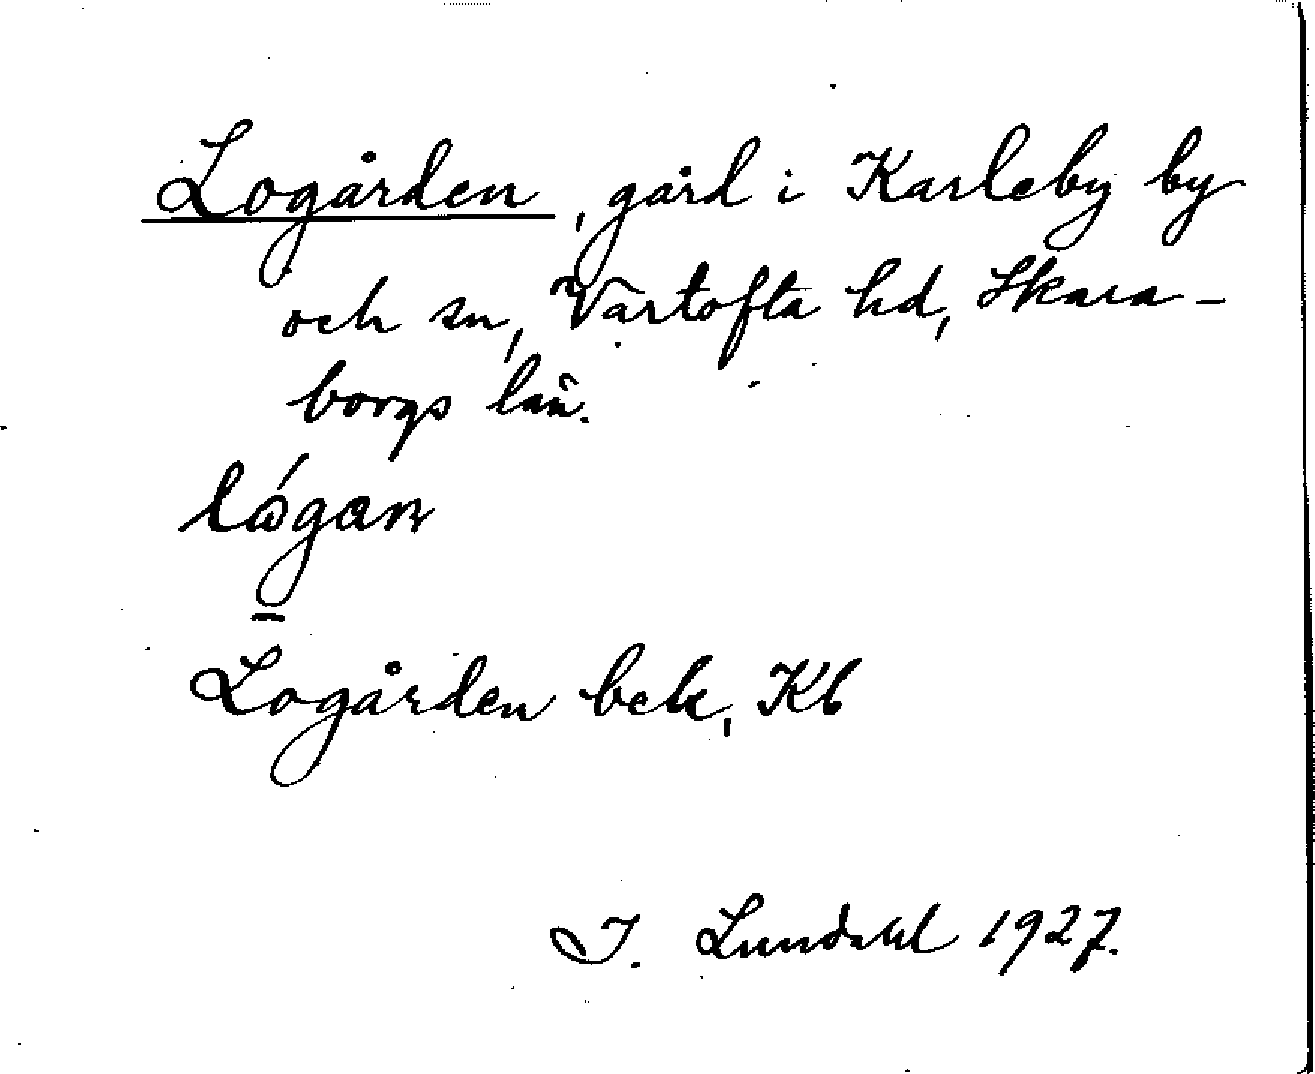 Logården, gård i Karleby by
och sn, Vartofta hd, Skara-
borgs län.
lógan
Logården bek, Kb
I. Lundahl 1927.